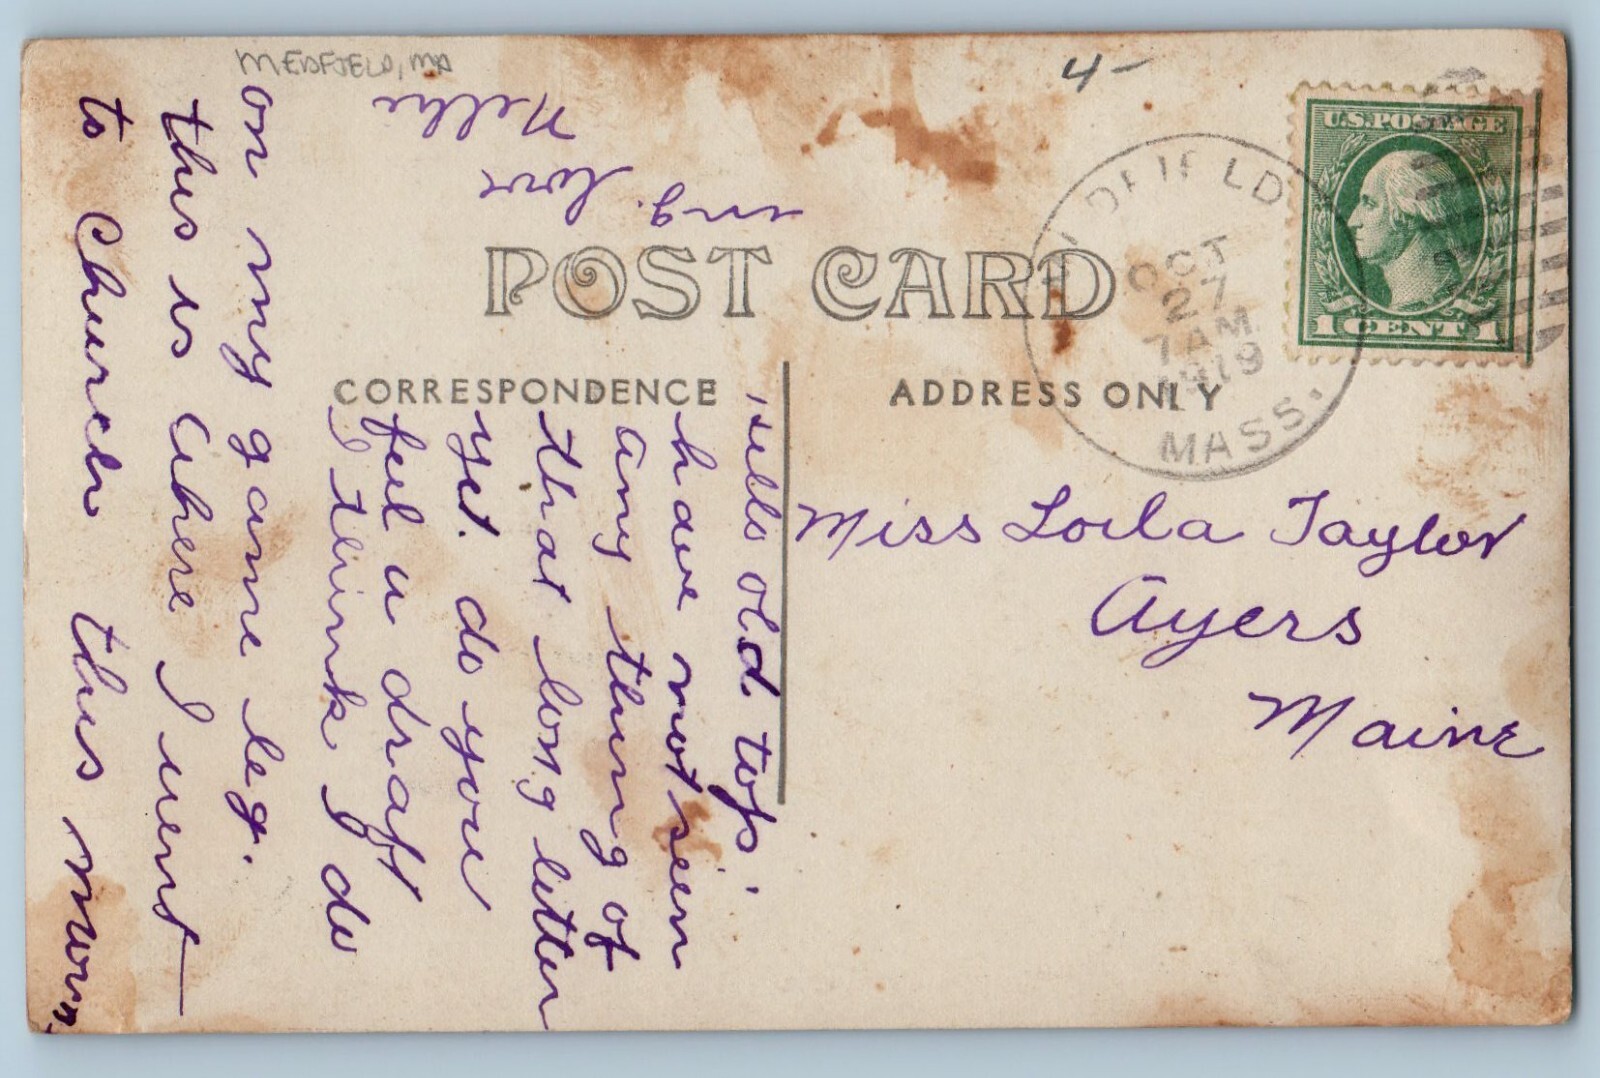 MEDFIELD, MA
4-
U.S. POSTAGE
1 CENT 1
DFIELD
OCT
27
7 AM
1919
MASS.
POST CARD
CORRESPONDENCE
ADDRESS ONLY
Miss Loila Taylor
Ayers
Maine
Hello old top,
have not seen
any thing of
that long letter
yet. do you
feel a draft
I think I do
on my game leg.
this is where I went
to church this morn
ing. love
Nellie